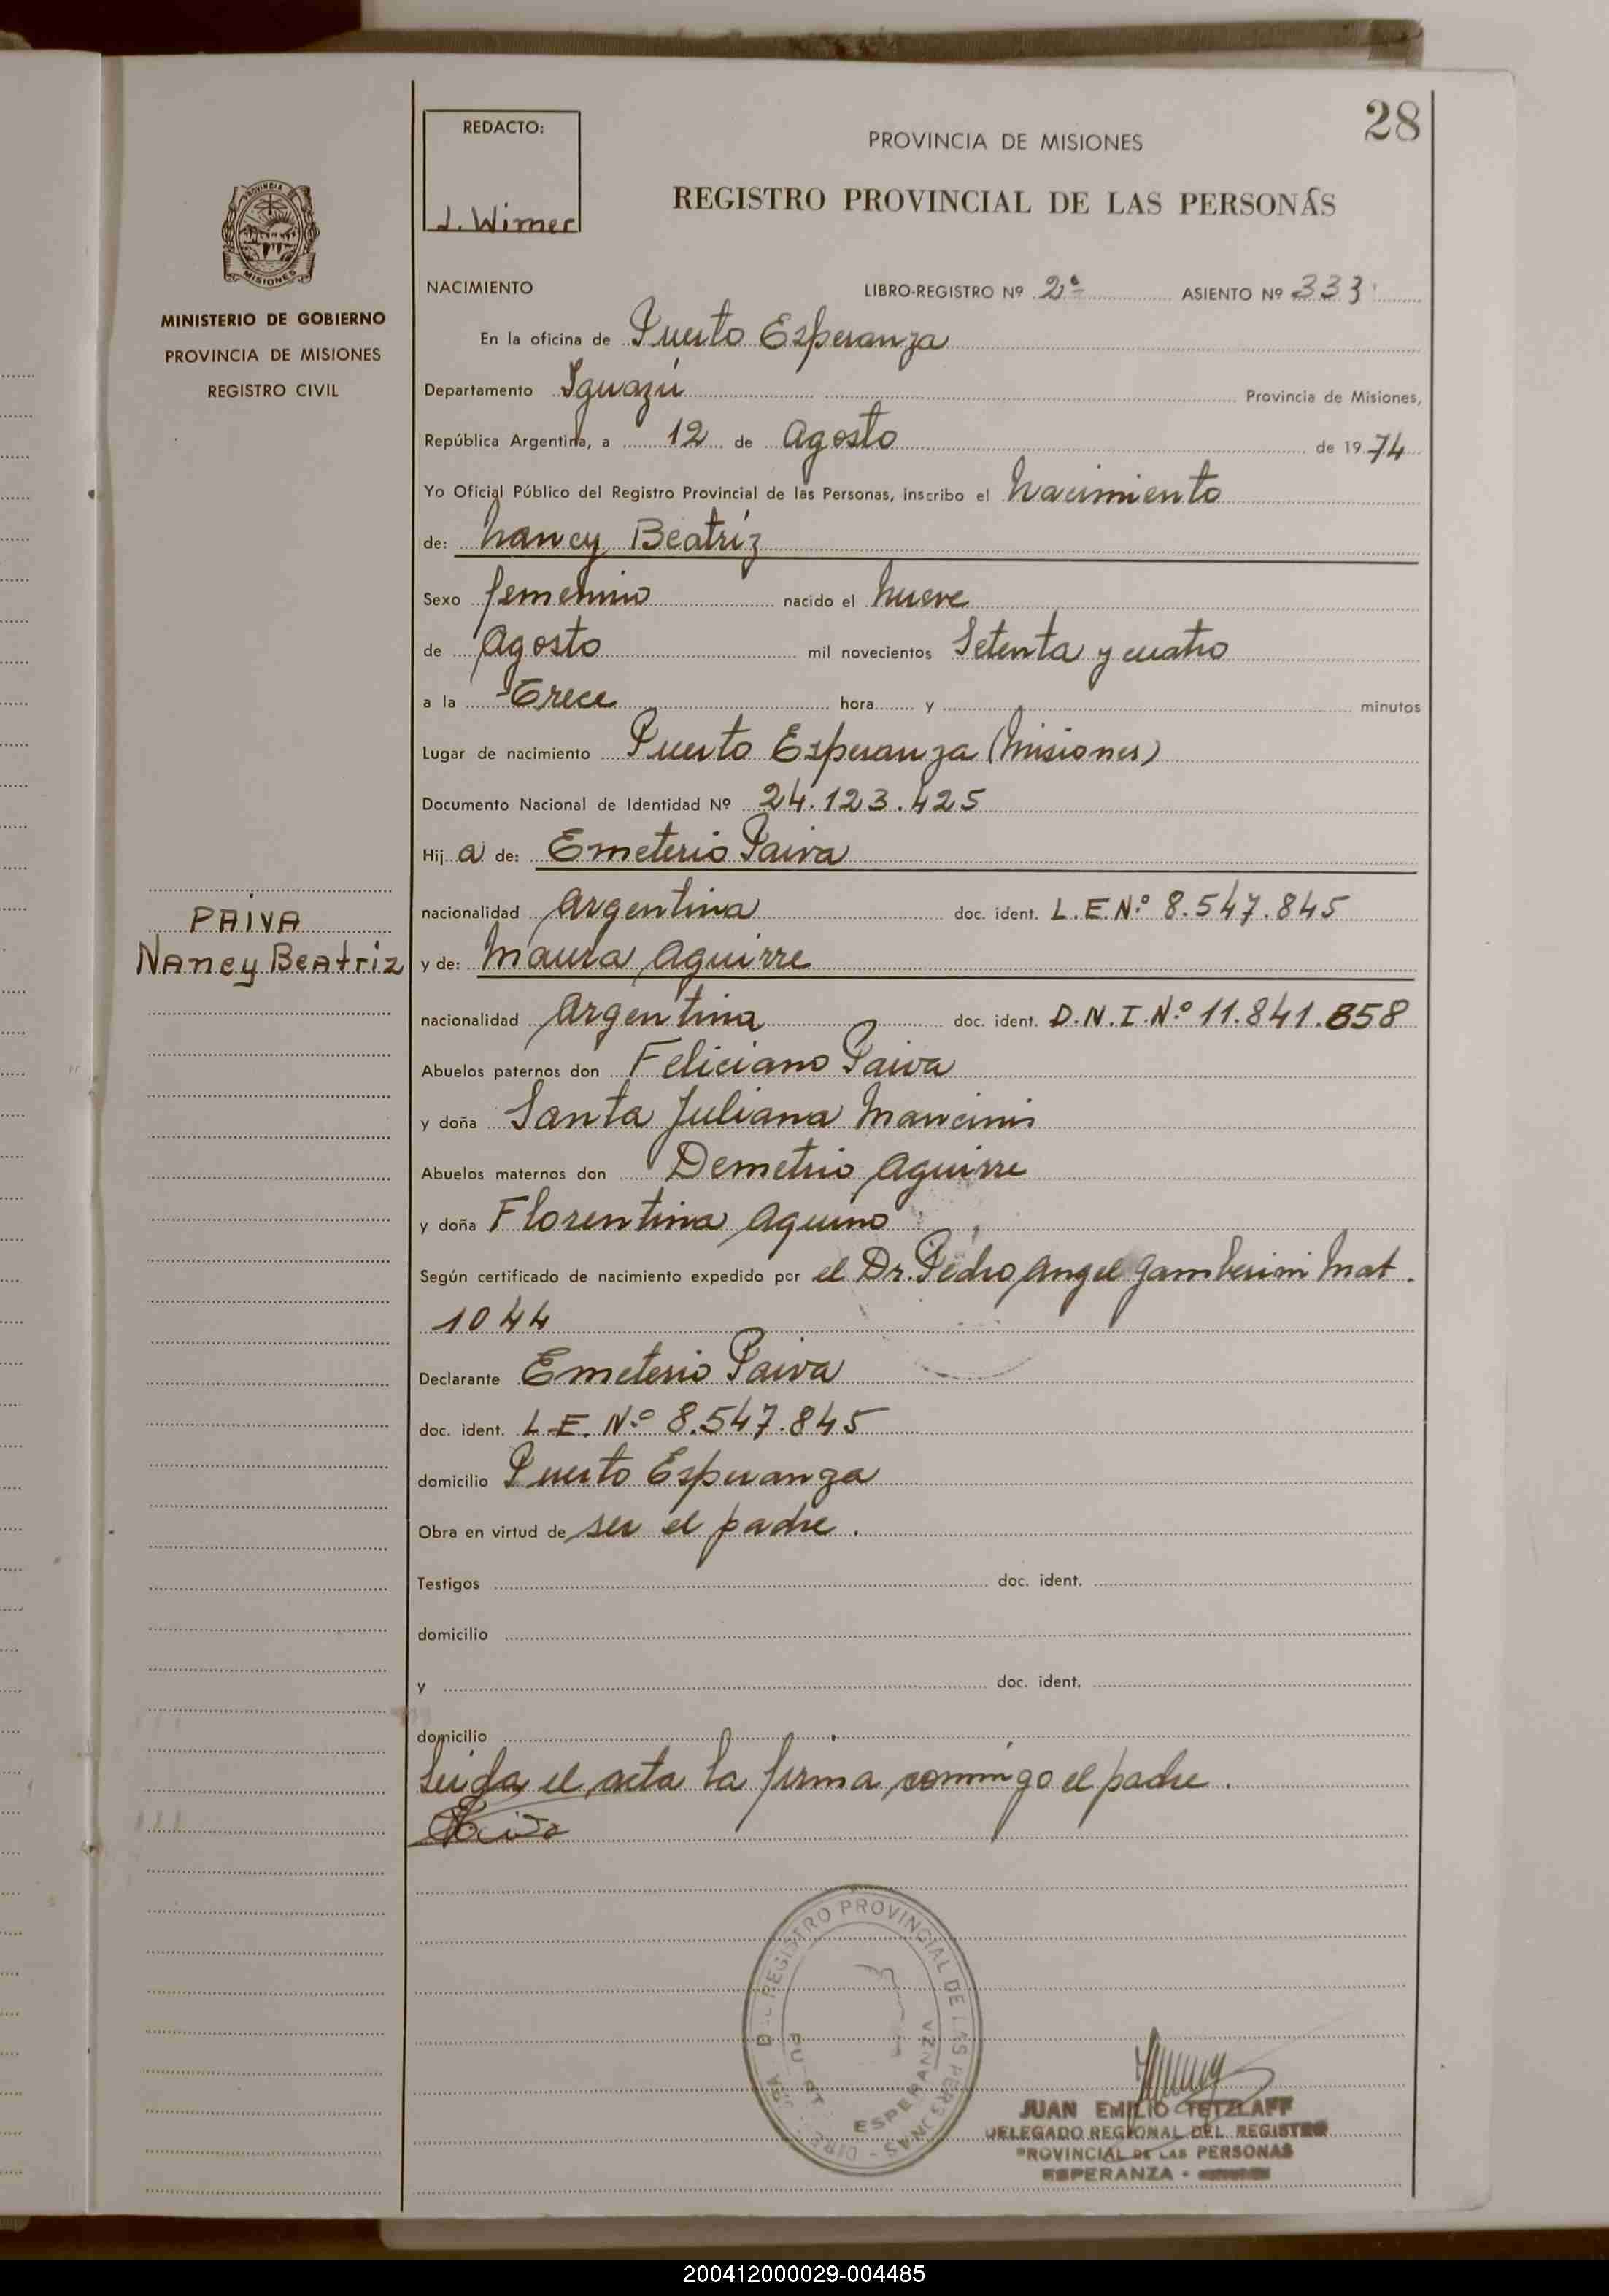 28
REDACTO:
J. Wimer
PROVINCIA DE MISIONES
REGISTRO PROVINCIAL DE LAS PERSONAS
PROVINCIA
MISIONES
MINISTERIO DE GOBIERNO
PROVINCIA DE MISIONES
REGISTRO CIVIL
NACIMIENTO LIBRO-REGISTRO Nº 2º ASIENTO Nº 333
En la oficina de Puerto Esperanza
Departamento Iguazú Provincia de Misiones,
República Argentina, a 12 de Agosto de 1974
Yo Oficial Público del Registro Provincial de las Personas, inscribo el Nacimiento
de: Nancy Beatríz
Sexo femenino nacido el Nueve
de Agosto mil novecientos Setenta y cuatro
a la Trece hora y minutos
Lugar de nacimiento Puerto Esperanza (Misiones)
Documento Nacional de Identidad Nº 24.123.425
Hij a de: Emeterio Paiva
nacionalidad Argentina doc. ident. L.E.Nº 8.547.845
PAIVA
Nancy Beatriz
y de: Maura Aguirre
nacionalidad Argentina doc. ident. D.N.I.Nº 11.841.858
Abuelos paternos don Feliciano Paiva
y doña Santa Juliana Mancinis
Abuelos maternos don Demetrio Aguirre
y doña Florentina Aquino
Según certificado de nacimiento expedido por el Dr. Pedro Angel Gamberini Mat.
1044
Declarante Emeterio Paiva
doc. ident. L.E. Nº 8.547.845
domicilio Puerto Esperanza
Obra en virtud de ser el padre.
Testigos doc. ident.
domicilio
y doc. ident.
domicilio
Leida el acta la firma conmigo el padre.
REGISTRO PROVINCIAL DE LAS PERSONAS
ESPERANZA
JUAN EMILIO TETZLAFF
DELEGADO REGIONAL DEL REGISTRO
PROVINCIAL DE LAS PERSONAS
ESPERANZA -
200412000029-004485